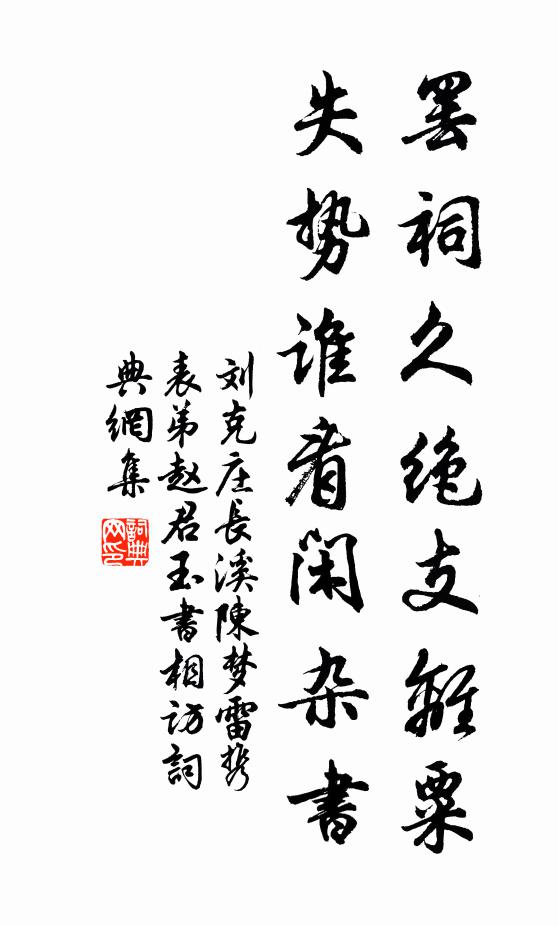 罢祠久绝支離粟
失势谁看闲杂書
刘克庄長溪陳梦雷携
表弟赵君玉書相访詞
典網集
詞典网印